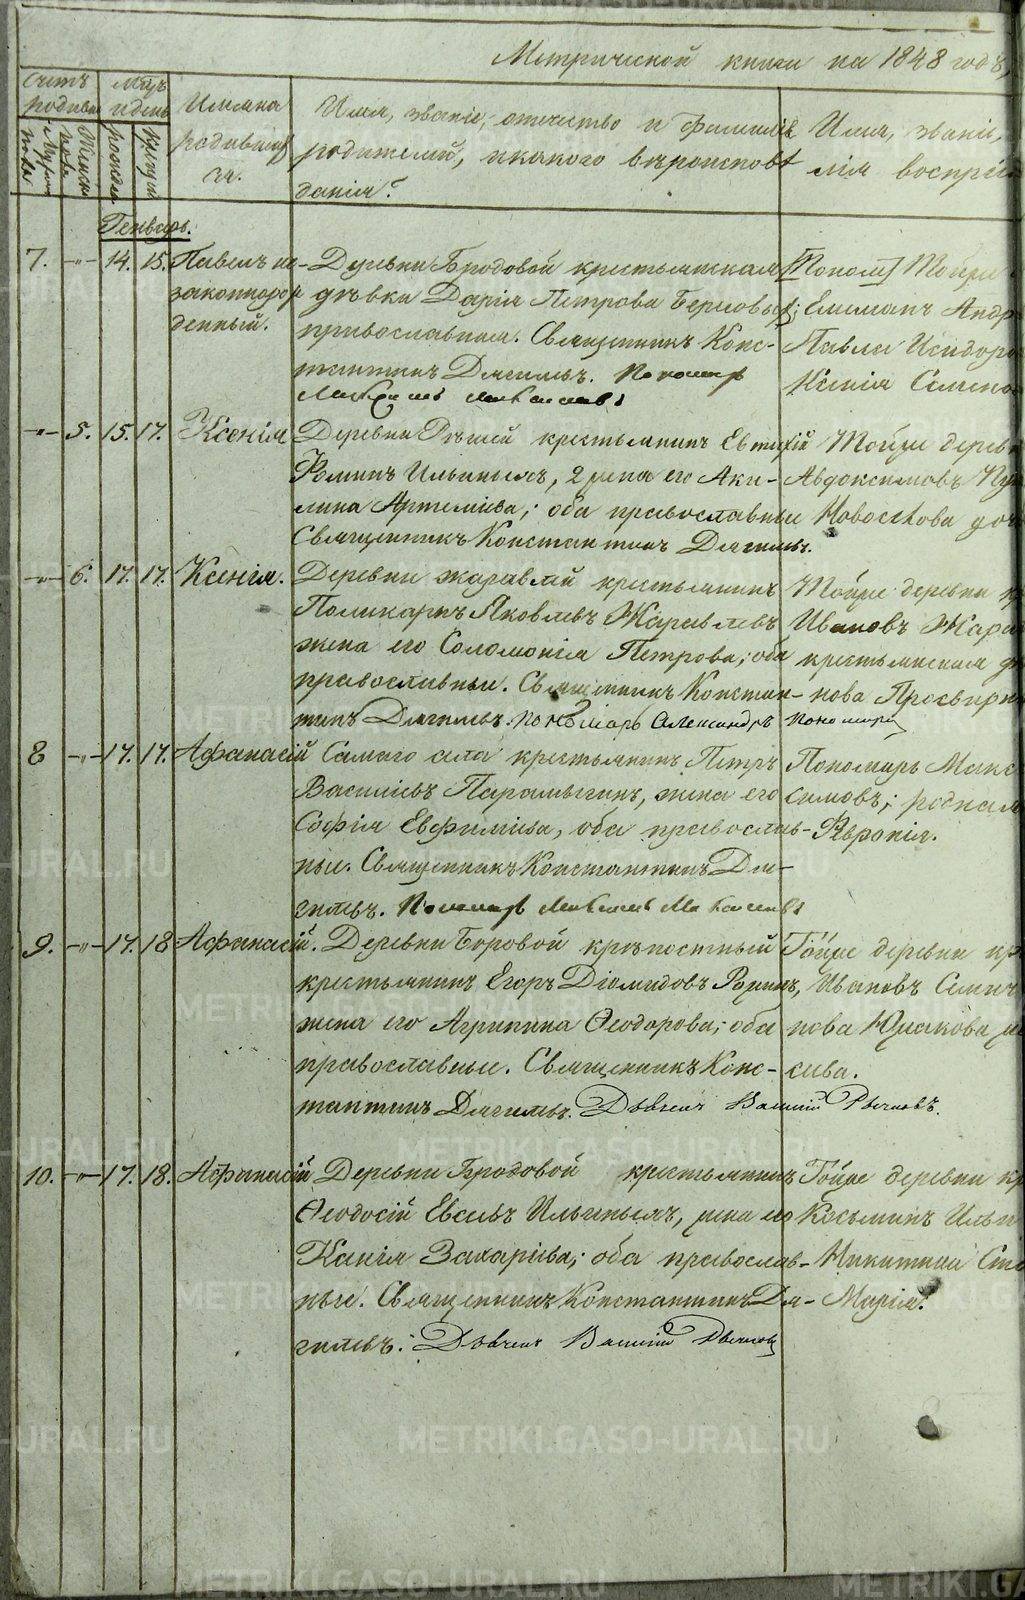 Метрической книги на 1848 годъ,
Счетъ родивш
Мужеска
пола
Женска
Мцъ и день
рожден
крещен
Имяна родившихся.
Имя, званіе, отечество и фамилія
родителей, и какого вѣроисповѣ
данія?
Имя, званіе,
лія воспріе
Генварь.
7. -"- 14. 15. Павелъ не-
законнорож
денный.
Деревни Бродовой крестьянская
дѣвка Дарія Петрова
православная. Священникъ Конс-
тантинъ Дягилевъ. Пономарь
Максимъ
Тойже
Емельянъ Андр
Павла Исидоро
Ксенія Семено
-"- 5. 15. 17. Ксенія
Деревни крестьянинъ Евтихій
Фоминъ Ильиныхъ, жена его Аки-
лина Артеміева; оба православные
Священникъ Константинъ Дягилевъ.
Тойже дерев
Авдокимовъ
дочь
-"- 6. 17. 17. Ксенія.
Деревни Жаравлей крестьянинъ
Поликарпъ Яковлевъ Жаравлевъ
жена его Соломонія Петрова; оба
православные. Священникъ Констан-
тинъ Дягилевъ. Пономарь Александръ Пономарев
Тойже деревни кр
Ивановъ Жара
крестьянская дѣ
нова Просвирн
8 -"- 17. 17. Афанасій
Самаго села крестьянинъ Петръ
Василіевъ Парамыгинъ, жена его
Софія Евфиміева, оба православ-
ные. Священникъ Константинъ Дя-
гилевъ. Пономарь Максимъ Максимовъ
Пономарь Макс
симовъ; родная
Февронія.
9. -"- 17. 18 Афанасій.
Деревни Боровой крѣпостный
крестьянинъ Егоръ Діомидовъ
жена его Агрипина Ѳеодорова; оба
православные. Священникъ Конс-
тантинъ Дягилевъ. Дьячекъ Василій
Тойже деревни кр
Ивановъ
нова Юшкова
сѣева.
10. -"- 17. 18. Афанасій
Деревни Бродовой крестьянинъ
Ѳеодосій Евсеевъ Ильиныхъ, жена его
Ксенія Захаріева; оба православ-
ные. Священникъ Константинъ Дя-
гилевъ. Дьячекъ Василій
Тойже деревни кр
Козьминъ Ильи
Никитина
Марія.
METRIKI.GASO-URAL.RU